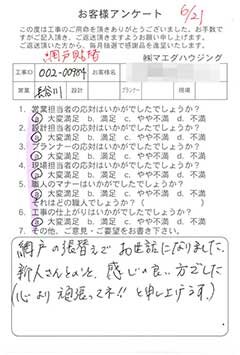 お客様アンケート
6/21
この度は工事のご用命を頂きありがとうございました。お手数で
すがご記入頂き、ご返送頂きますようお願い申し上げます。
ご返送頂いた方から、毎月抽選で感謝品を進呈いたします。
網戸貼替
㈱マエダハウジング
工事ID 002-00984 お客様名
営業 長谷川 設計 プランナー 現場
1. 営業担当者の応対はいかがでしたでしょうか？
a 大変満足 b. 満足 c. やや不満 d. 不満
2. 設計担当者の応対はいかがでしたでしょうか？
a. 大変満足 b. 満足 c. やや不満 d. 不満
3. プランナーの応対はいかがでしたでしょうか？
a. 大変満足 b. 満足 c. やや不満 d. 不満
4. 現場担当者の応対はいかがでしたでしょうか？
a 大変満足 b. 満足 c. やや不満 d. 不満
5. 職人のマナーはいかがでしたでしょうか？
a 大変満足 b. 満足 c. やや不満 d. 不満
それはどの職人でしょうか？（ ）
6. 工事の仕上がりはいかがでしたでしょうか？
a 大変満足 b. 満足 c. やや不満 d. 不満
7. その他、ご意見・ご要望をお書き下さい。
網戸の張替えで お世話になりました。
新人さんとかと、感じの良い方でした
(心より 頑張ってネ!! と申し上げます。)